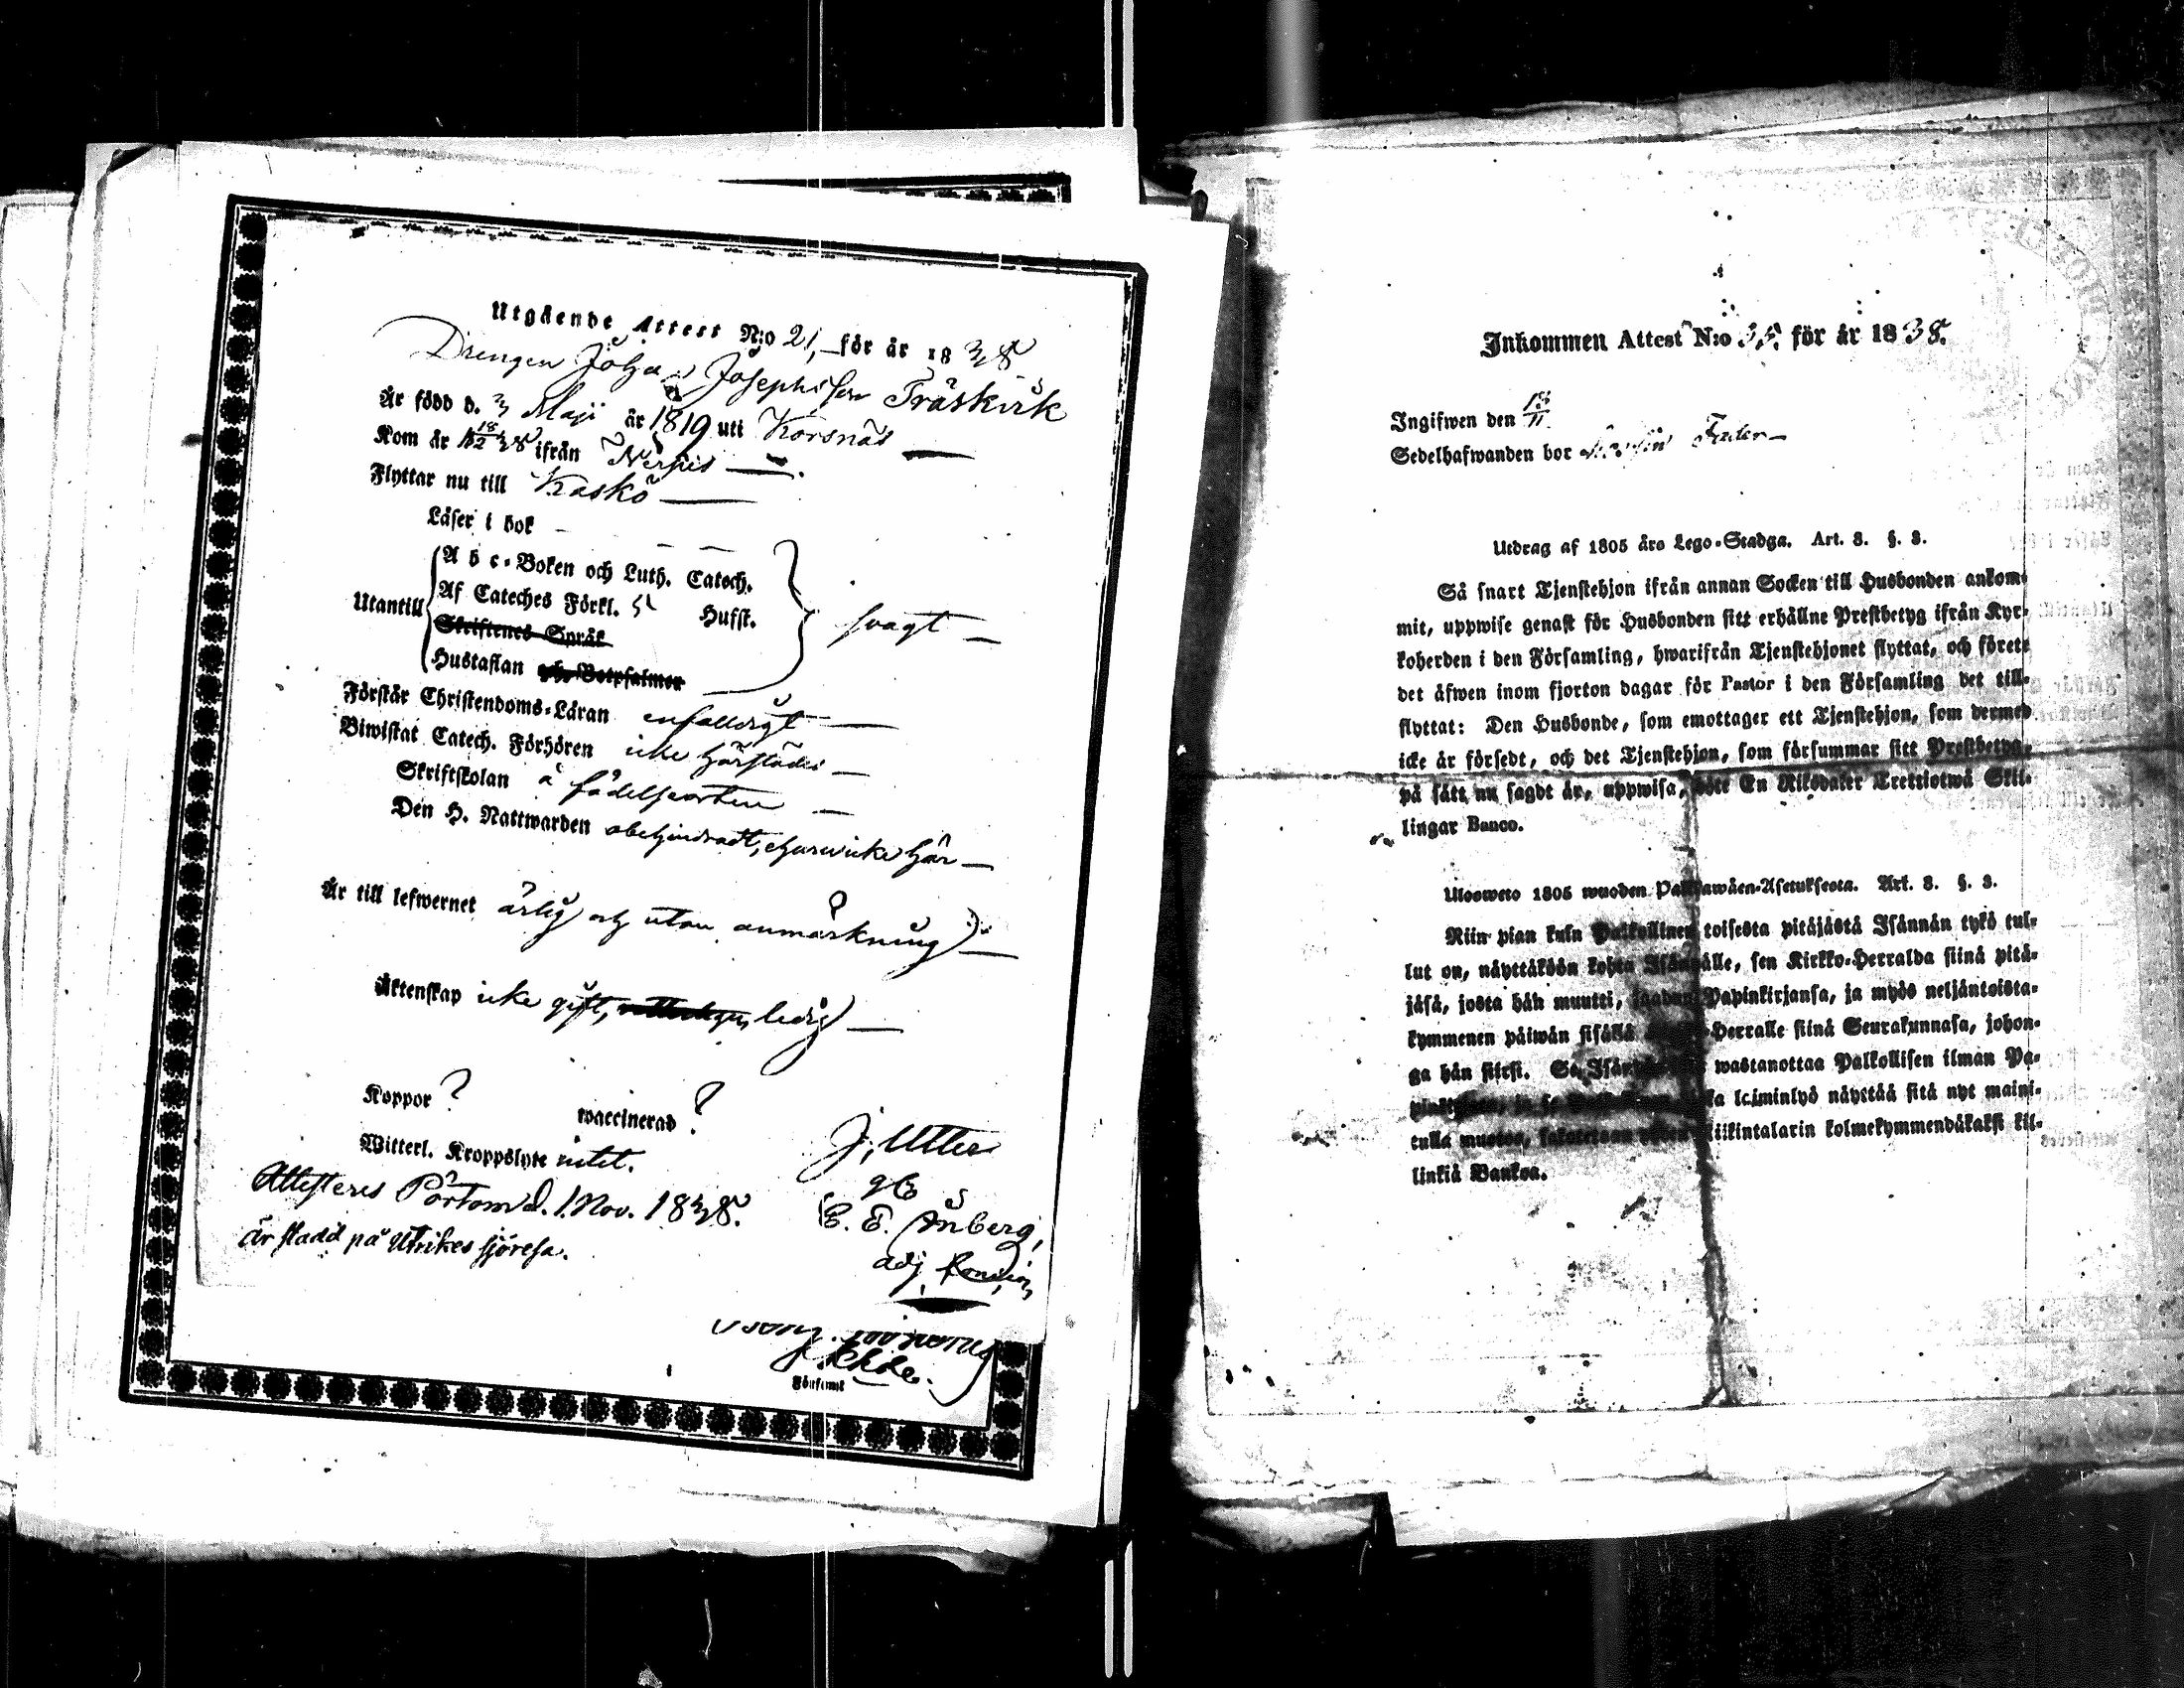 Utgående Attest N:o 21, för år 1838
Drengen Johan Josephsson Träskvik
Är född d. 3 Maji år 1819 uti Korsnäs
Kom år 18/2 38 ifrån Nerpis
Flyttar nu till Kaskö
Läser i bok
Utantill
A b c-Boken och Luth. Catech.
Af Cateches Förkl. 5 Hufst.
Skriftenes Språk
Hustaflan och Botpsalmer
svagt
Förstår Christendoms-Läran enfaldigt
Biwistat Catech. Förhören icke härstädes
Skriftskolan å födelseorten
Den H. Nattwarden obehindradt, ehuru icke här
Är till lefwernet ärlig och utan anmärkning
Äktenskap icke gift, ledig
Koppor ? waccinerad ?
Witterl. Kroppslyte intet.
Attesteres Pörtom d. 1. Nov. 1838.
är stadd på utrikes sjöresa.
J. Utter
E. E. Önberg,
adj
Inkommen Attest N:o 35. för år 1838.
Ingifwen den
Sedelhafwanden bor Fader
Utdrag af 1805 års Lego-Stadga. Art. 8. §. 3.
Så snart Tjenstehjon ifrån annan Socken till Husbonden ankom-
mit, uppwise genast för Husbonden sitt erhållne Prestbetyg ifrån Kyr-
koherden i den Församling, hwarifrån Tjenstehjonet flyttat, och förete
det äfwen inom fjorton dagar för Pastor i den Församling det till-
flyttat: Den Husbonde, som emottager ett Tjenstehjon, som dermed
icke är försedt, och det Tjenstehjon, som försummar sitt Prestbetyg,
på sätt nu sagdt är, uppwisa, böte En Riksdaler Trettiotwå Skil-
lingar Banco.
Ulosweto 1805 wuoden Palkkawäen-Asetuksesta. Art. 8. §. 3.
Niin pian kuin Palkollinen toisesta pitäjästä Isännän tykö tul-
lut on, näyttäköön kohta Isännälle, sen Kirkko-Herralda siinä pitä-
jäsä, josta hän muutti, saadun Papinkirjansa, ja myös neljäntoista-
kymmenen päiwän sisällä Herralle siinä Seurakunnasa, johon-
ga hän siirsi. Se Isäntä wastanottaa Palkollisen ilman Pa-
leiminlyö näyttää sitä nyt maini-
tulla muotoa, Riikintalarin kolmekymmendäkaksi kil-
linkiä Bankoa.